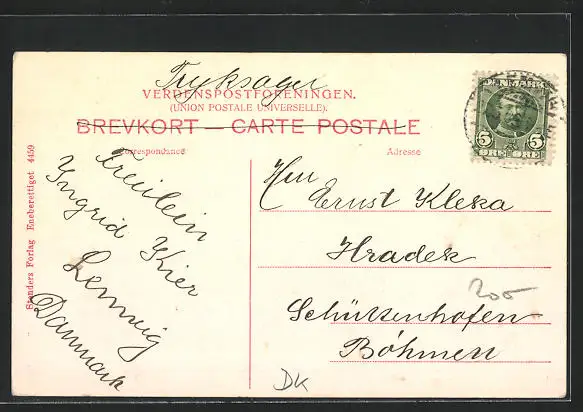 Tryksager
VERDENSPOSTFORENINGEN.
(UNION POSTALE UNIVERSELLE).
BREVKORT — CARTE POSTALE
Correspondance
Adresse
DANMARK
5 5
ØRE ØRE
Stenders Forlag Eneberettiget 4459
Freulein
Yngrid Kier
Lemvig
Danmark
Herrn
Ernst Kleka
Hradek
Schüttenhofen
Böhmen
200
DK